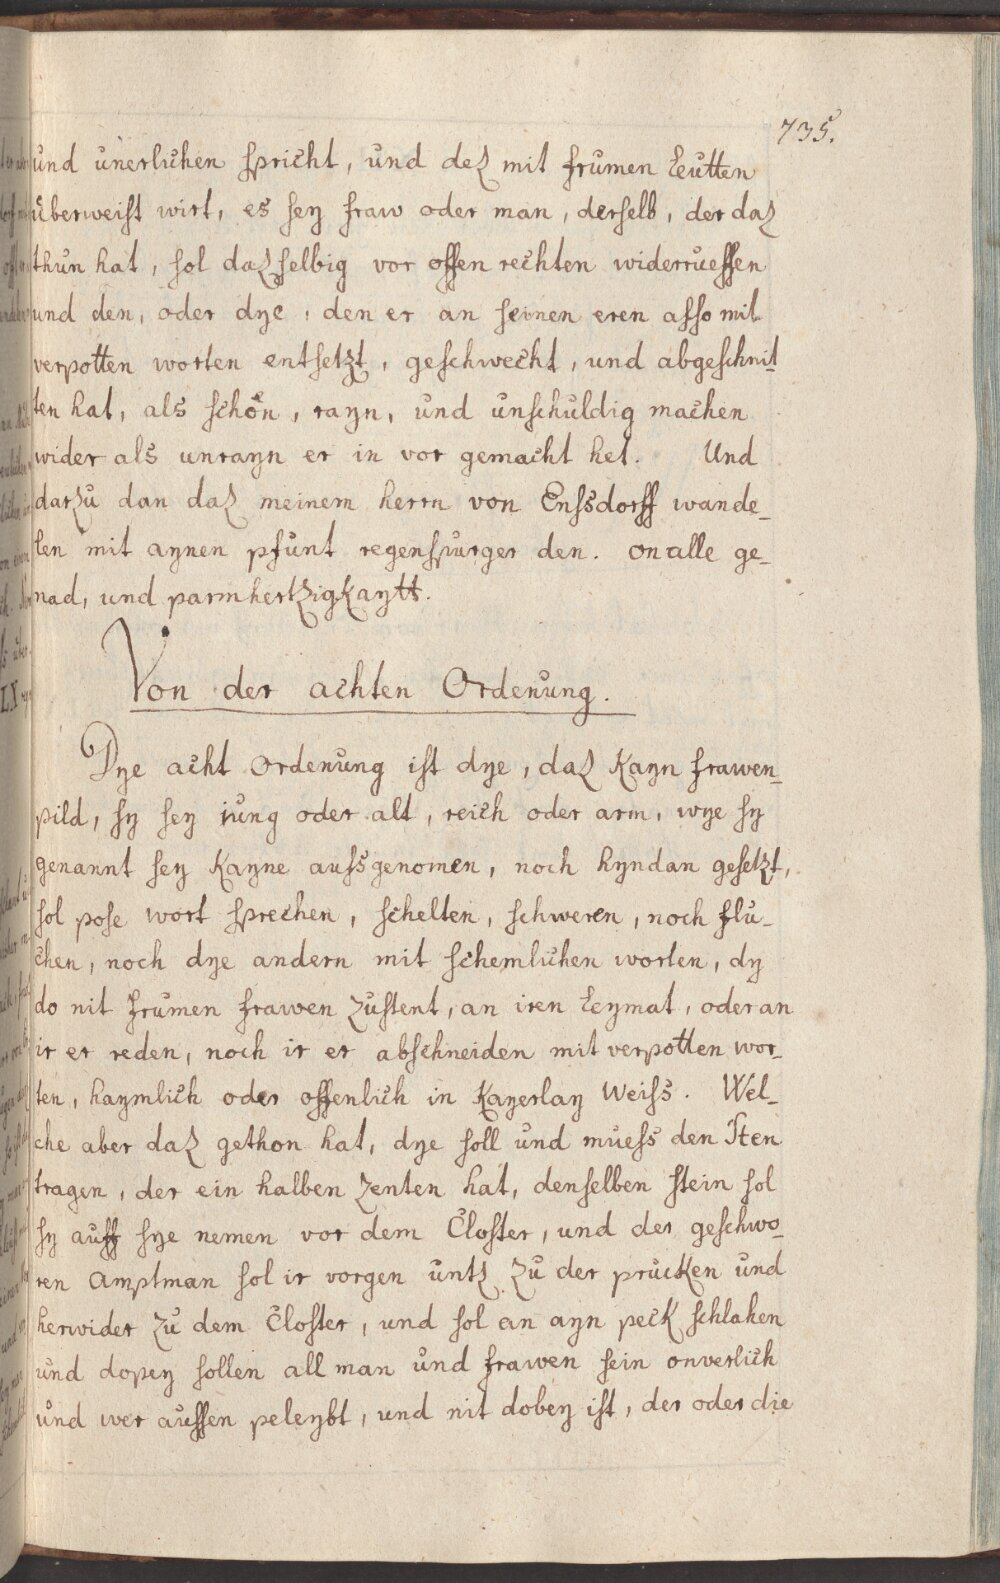 735.
und unerlichen spricht, und deß mit frumen Leutten
überweist wirt, es sey fraw oder man, derselb, der daß
thun hat, sol daßselbig vor offen rechten widerrueffen
und den, oder dye, den er an seinen eren asso mit
verpotten worten entsetzt, geschwecht, und abgeschnit_
ten hat, als schön, rayn, und unschuldig machen
wider als unrayn er in vor gemacht het. Und
darzu dan daß meinem herrn von Ensdorff wande_
len mit aynen pfunt regenspurger den. on alle ge_
nad, und parmhertzigkaytt.
Von der achten Ordenung.
Dye acht Ordenung ist dye, daß kayn frawen_
pild, sy sey jung oder alt, reich oder arm, wye sy
genannt sey kayne aussgenomen, noch hyndan gesetzt,
sol pose wort sprechen, schelten, schweren, noch flu_
chen, noch dye andern mit schemlichen worten, dy
do nit frumen frawen zustent, an iren Leymat, oder an
ir er reden, noch ir er abschneiden mit verpotten wor_
ten, haymlich oder offenlich in kayerlay weiss. Wel_
che aber daß gethon hat, dye soll und muess den Sten
tragen, der ein halben zenten hat, denselben stein sol
sy auff sye nemen vor dem Closter, und der geschwo_
ren Amptman sol ir vorgen untz zu der prucken und
herwider zu dem Closter, und sol an ayn peck schlahen
und dopey sollen all man und frawen sein onverlich
und wer aussen peleybt, und nit dobey ist, der oder die